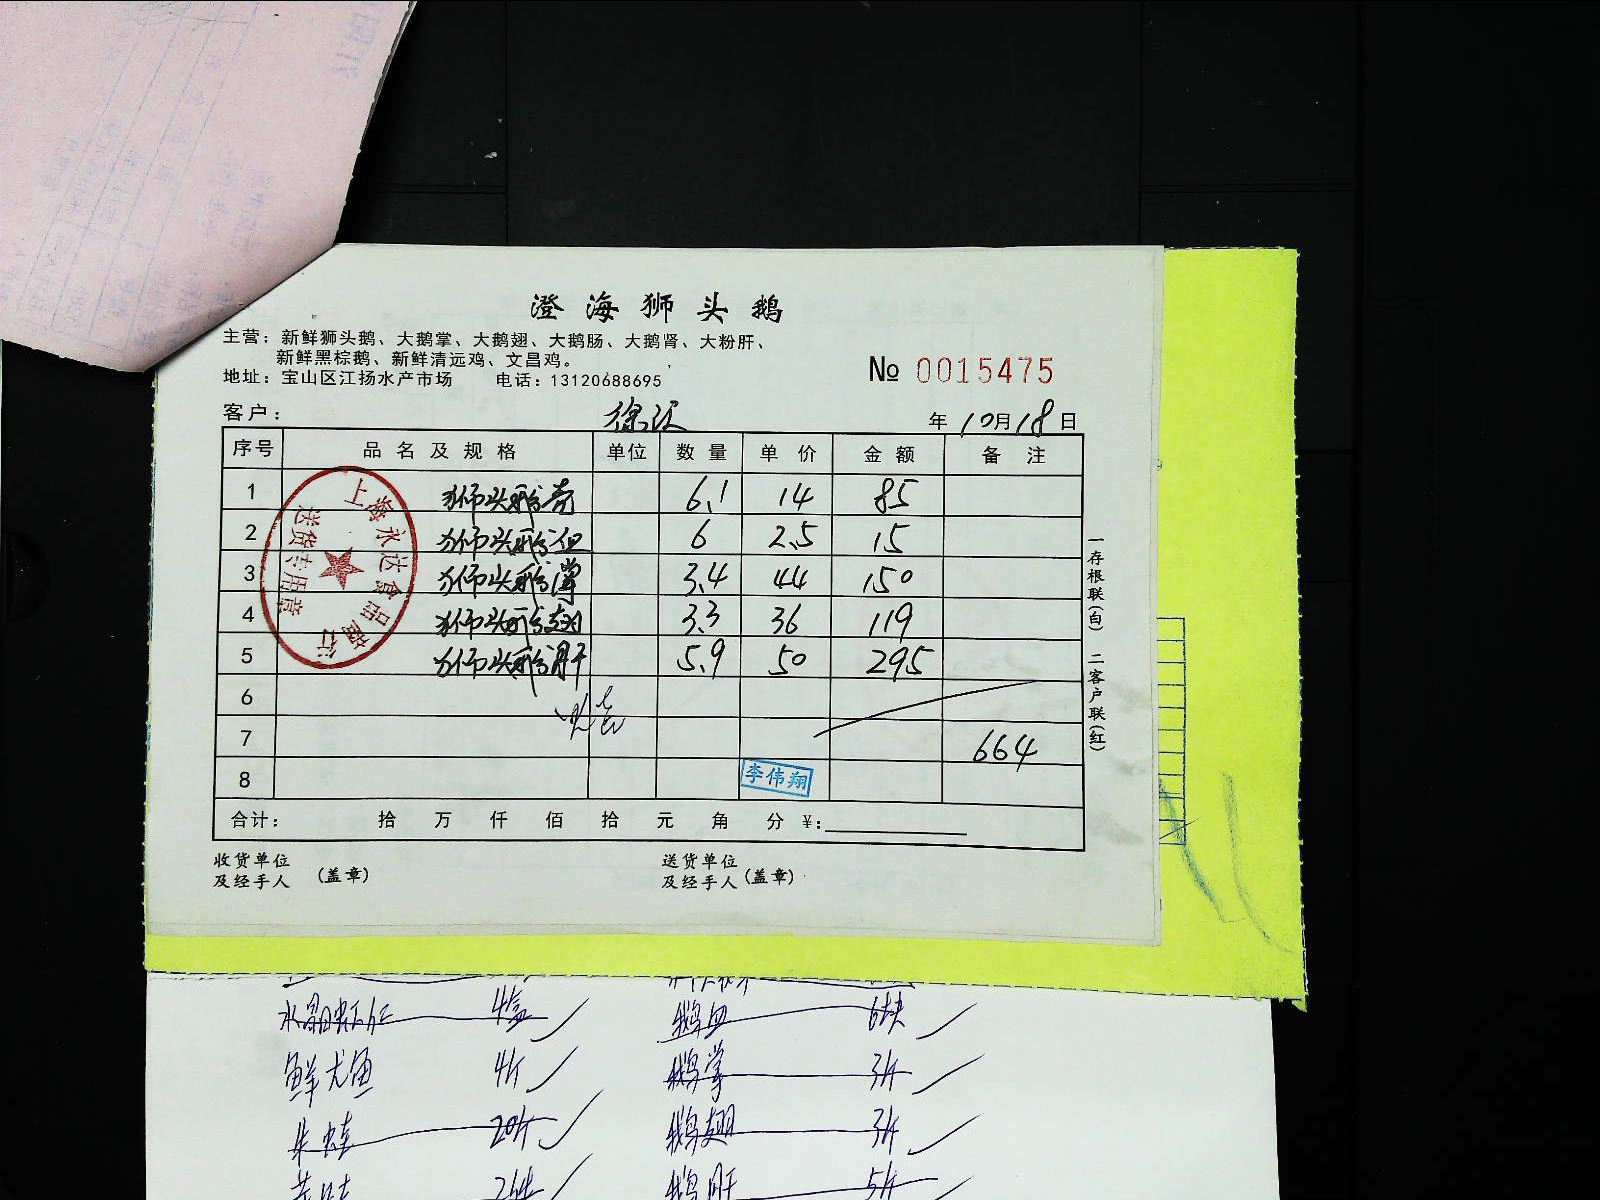 澄海狮头鹅
主营：新鲜狮头鹅、大鹅掌、大鹅翅、大鹅肠、大鹅肾、大粉肝、
新鲜黑棕鹅、新鲜清远鸡、文昌鸡。
地址：宝山区江扬水产市场 电话：13120688695
№ 0015475
客户： 徐汇 年10月18日
序号 品名及规格 单位 数量 单价 金额 备注
1 狮头鹅壳 6.1 14 85
2 狮头鹅血 6 2.5 15
3 狮头鹅掌 3.4 44 150
4 狮头鹅翅 3.3 36 119
5 狮头鹅肝 5.9 50 295
6
7 664
8 李伟翔
合计： 拾 万 仟 佰 拾 元 角 分 ¥：
收货单位
及经手人（盖章）
送货单位
及经手人（盖章）
一存根联(白) 二客户联(红)
上海永达食品商行
送货专用章
水晶虾仁 4盒 鹅血 6块
鲜尤鱼 4斤 鹅掌 3斤
牛蛙 20斤 鹅翅 3斤
鹅肝 5斤